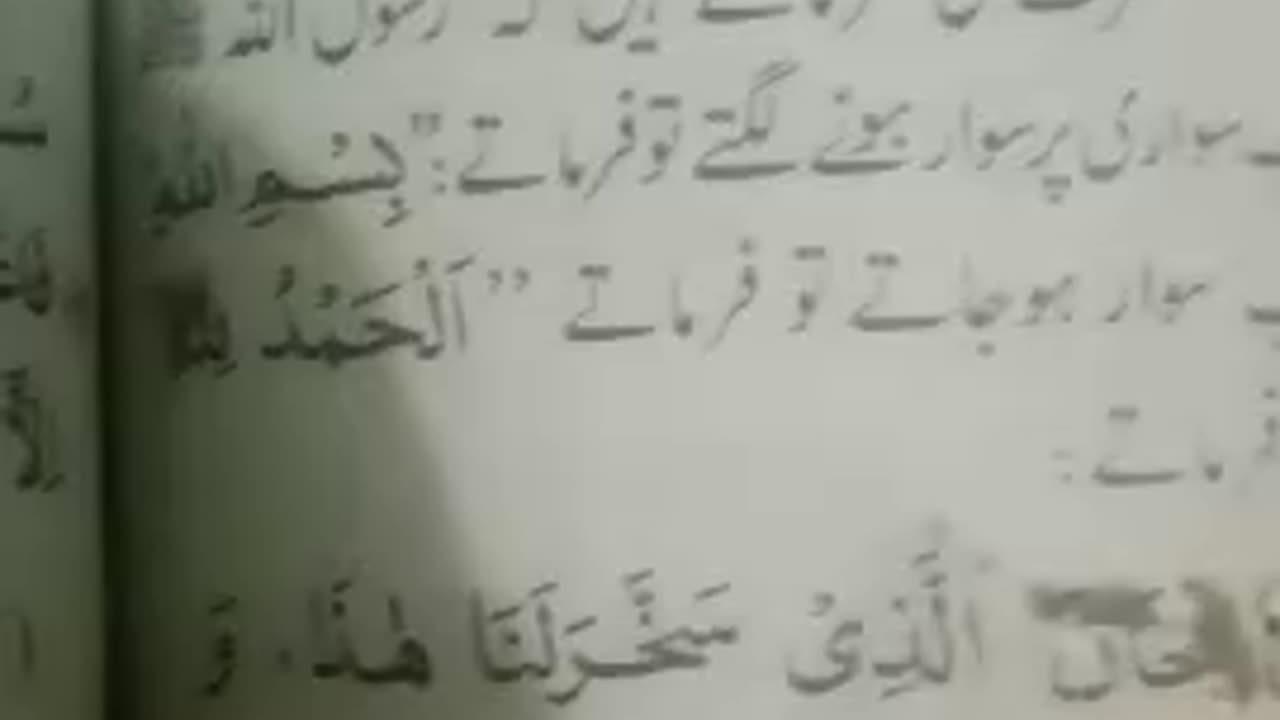 فرماتے ہیں کہ رسول اللہ ﷺ
سواری پر سوار ہونے لگتے تو فرماتے: "بِسْمِ اللّٰهِ
سوار ہوجاتے تو فرماتے "اَلْحَمْدُ لِلّٰهِ
فرماتے:
الَّذِیْ سَخَّرَلَنَا هٰذَا، وَ